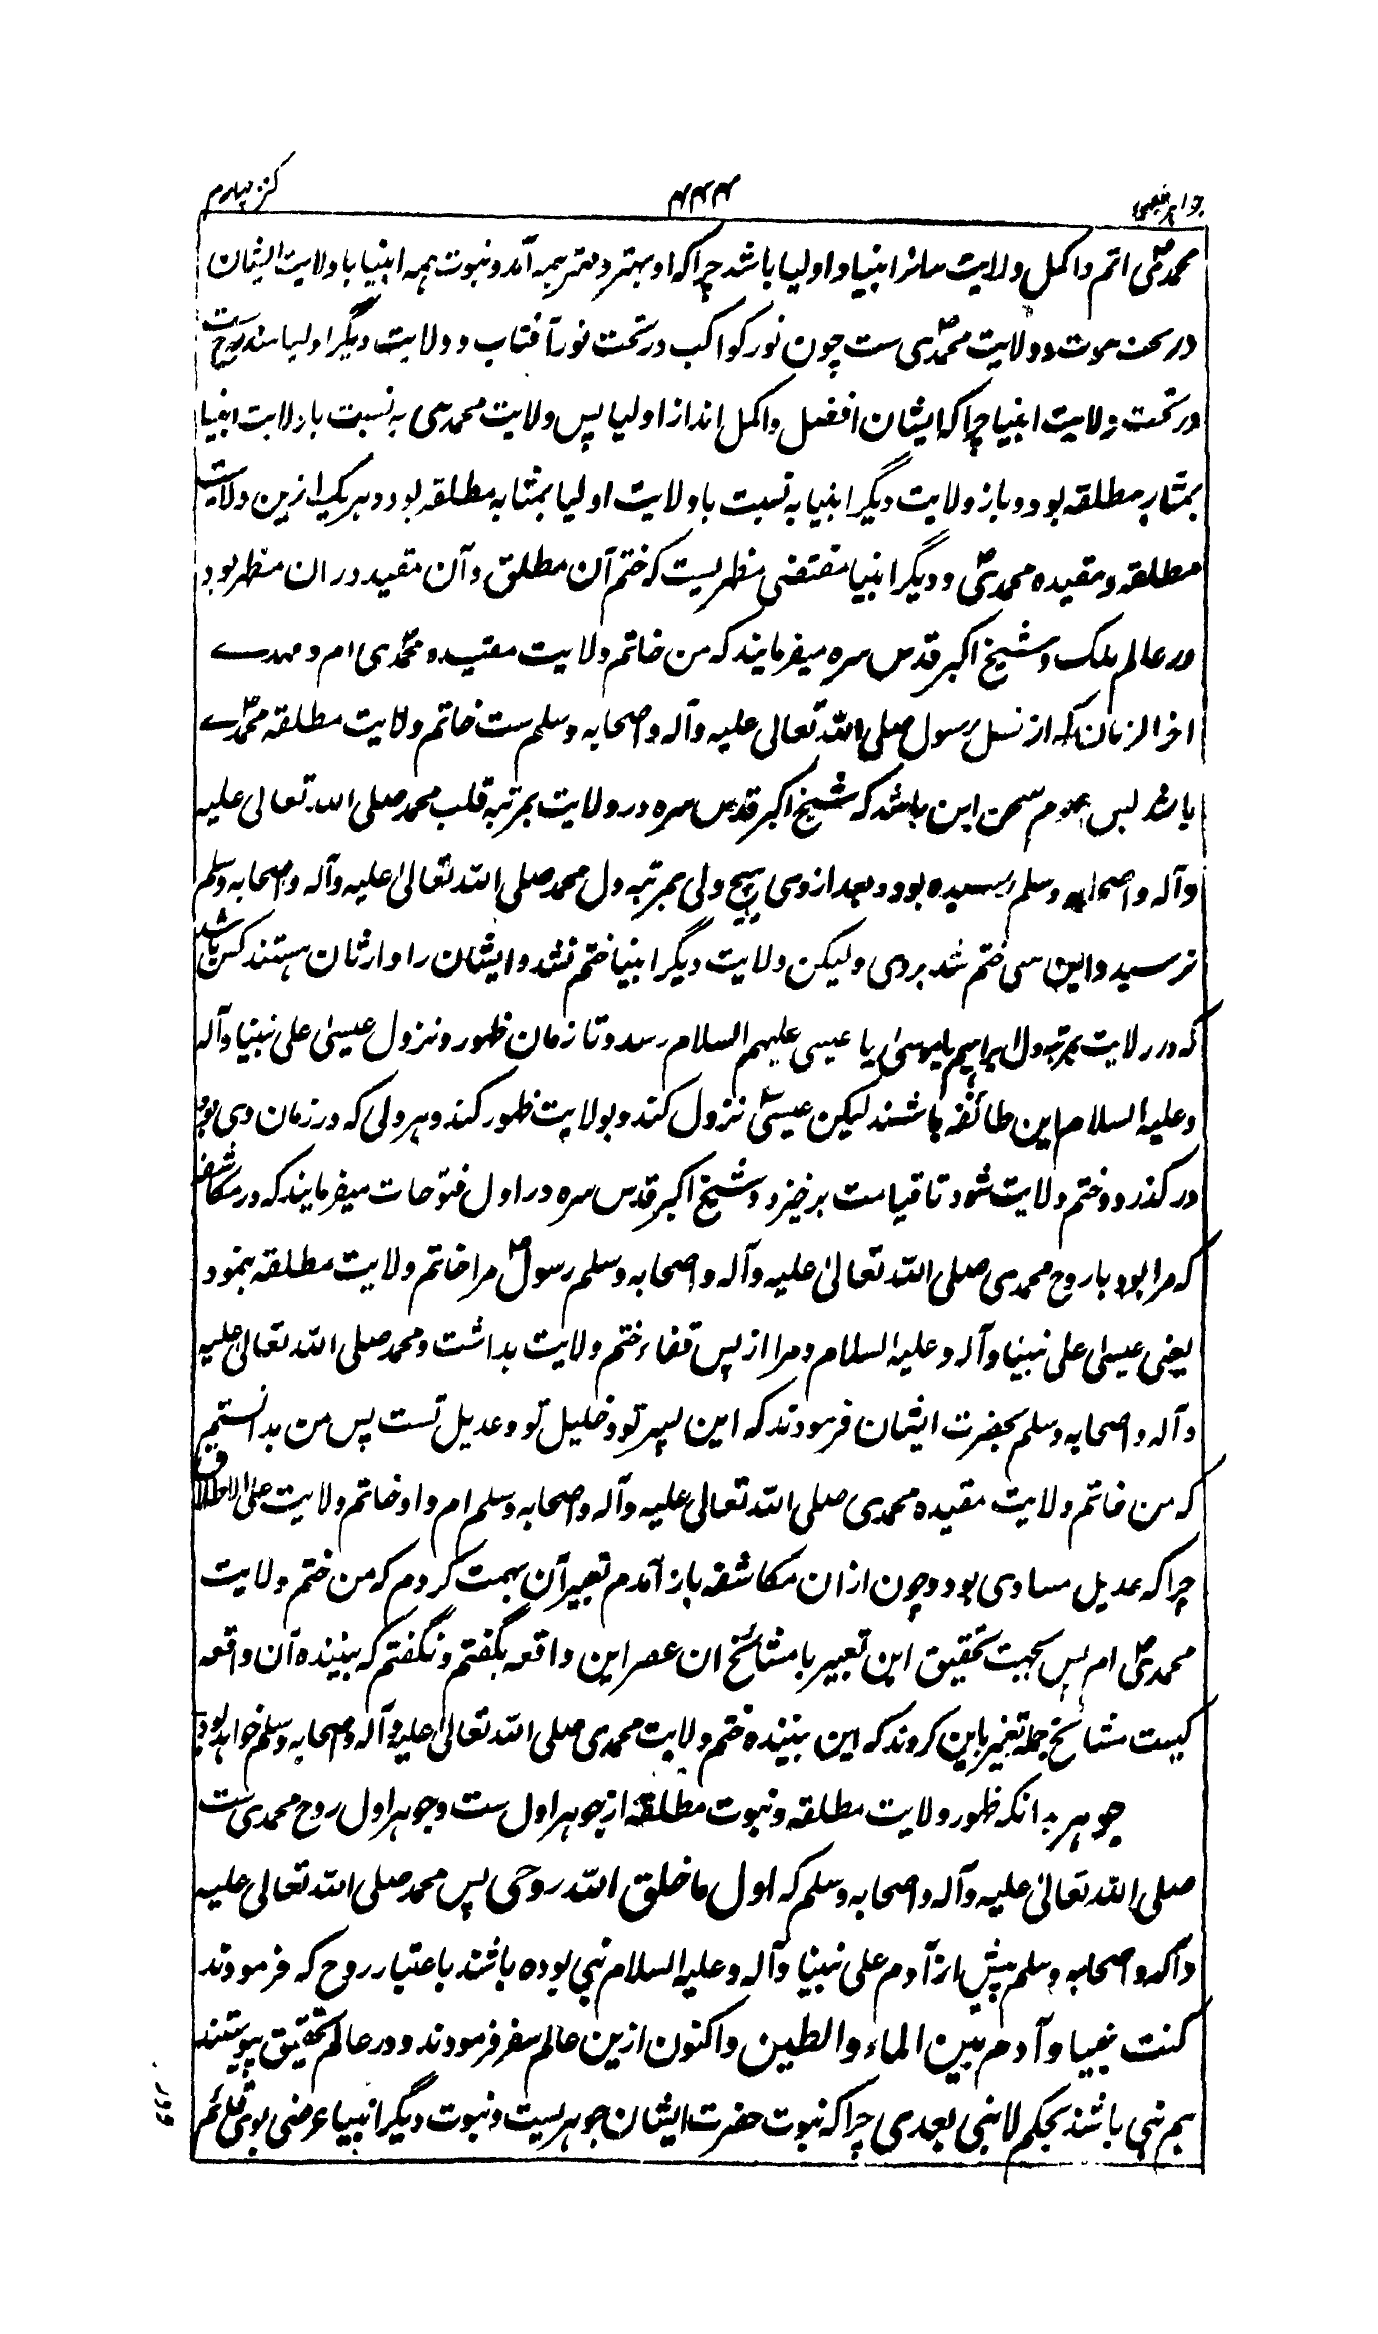 جواہر غیبی ۴۴۴ کنز چہارم
محمدیؐ اتم و اکمل ولایت سائر انبیا و اولیا باشد چراکہ او بہتر و مہتر ہمہ آمد و نبوت ہمہ انبیا با ولایت ایشان
در تحت نبوت و ولایت محمدیؐ ست چون نور کواکب در تحت نور آفتاب و ولایت دیگر اولیا مندرج ست
در تحت ولایت انبیا چراکہ ایشان افضل و اکمل اند از اولیا پس ولایت محمدی بہ نسبت با ولایت انبیا
بمثابہ مطلقہ بود و باز ولایت دیگر انبیا بہ نسبت با ولایت اولیا بمثابہ مطلقہ بود و ہر یک ازین ولایت
مطلقہ و مقیدہ محمدیؐ و دیگر انبیا مقتضی مظہریست کہ ختم آن مطلق و آن مقید دران مظہر بود
در عالم ملک و شیخ اکبر قدس سرہ میفرمایند کہ من خاتم ولایت مقیدہ محمدیؐ ام و مہدے
اخر الزمان کہ از نسل رسول صلی اللہ تعالی علیہ وآلہ واصحابہ وسلم ست خاتم ولایت مطلقہ محمدؐے
باشد پس سخن این باشد کہ شیخ اکبر قدس سرہ در ولایت بمرتبہ قلب محمد صلی اللہ تعالی علیہ
وآلہ واصحابہ وسلم رسیدہ بود و بعد از وی ہیچ ولی بمرتبہ دل محمد صلی اللہ تعالیٰ علیہ وآلہ واصحابہ وسلم
نرسید و این سی ختم شد بروی ولیکن ولایت دیگر انبیا ختم نشد و ایشان را وارثان ہستند کس باشد
کہ در ولایت بمرتبہ دل ابراہیم یا موسیٰ یا عیسی علیہم السلام رسد و تا زمان ظہور و نزول عیسیٰ علی نبینا وآلہ
وعلیہ السلام این طائفہ باشند لیکن عیسیؑ نزول کند و بولایت ظہور کند و ہر ولی کہ در زمان وی بود
در گذرد و ختم ولایت شود تا قیامت برخیزد و شیخ اکبر قدس سرہ در اول فتوحات میفرمایند کہ در مکاشفہ
کہ مرا بود با روح محمدی صلی اللہ تعالیٰ علیہ وآلہ واصحابہ وسلم رسولؐ مرا خاتم ولایت مطلقہ بنمود
یعنی عیسیٰ علی نبینا وآلہ وعلیہ السلام و مرا از پس قفاء ختم ولایت بداشت و محمد صلی اللہ تعالیٰ علیہ
وآلہ واصحابہ وسلم بحضرت ایشان فرمودند کہ این پسر تو و خلیل تو و عدیل تست پس من بدانستم
کہ من خاتم ولایت مقیدہ محمدی صلی اللہ تعالی علیہ وآلہ واصحابہ وسلم ام و او خاتم ولایت علی الاطلاق
چراکہ عدیل مساوی بود و چون ازان مکاشفہ باز آمدم تعبیر آن بہمت کردم کہ من ختم ولایت
محمدیؐ ام پس بجہت تحقیق این تعبیر با مشائخ ان عصر این واقعہ بگفتم و نگفتم کہ بینندہ آن واقعہ
کیست مشائخ جملہ تعبیر باین کردند کہ این بینندہ ختم ولایت محمدی صلی اللہ تعالیٰ علیہ وآلہ واصحابہ وسلم خواہد بود
جوہر بدانکہ ظہور ولایت مطلقہ و نبوت مطلقہ از جوہر اول ست و جوہر اول روح محمدی ست
صلی اللہ تعالیٰ علیہ وآلہ واصحابہ وسلم کہ اول ما خلق اللہ روحی پس محمد صلی اللہ تعالی علیہ
وآلہ واصحابہ وسلم پیش از آدم علی نبینا وآلہ وعلیہ السلام نبی بودہ باشند باعتبار روح کہ فرمودند
کنت نبیا وآدم بین الماء والطین و اکنون ازین عالم سفر فرمودند و در عالم تحقیق پیوستند
ہم نبی باشند بحکم لا نبی بعدی چراکہ نبوت حضرت ایشان جوہریست و نبوت دیگر انبیا عرضی بود قائم